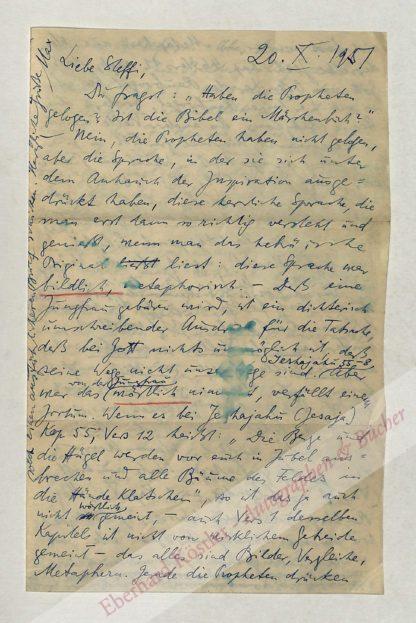 20. X. 1951
Liebe Steffi,
Du fragst: „Haben die Propheten
gelogen? Ist die Bibel ein Märchenbuch?"
Nein, die Propheten haben nicht gelogen,
aber die Sprache, in der sie sich unter
dem Anhauch der Inspiration ausge=
drückt haben, diese herrliche Sprache, die
man erst dann so richtig versteht und
genießt, wenn man das hebräische
Original liest: diese Sprache war
bildlich, metaphorisch. – Daß eine
Jungfrau gebären wird, ist ein dichterisch
umschreibender Ausdruck für die Tatsache,
daß bei Gott nichts unmöglich ist, daß
seine Wege nicht unsere Wege sind. Aber
Jeshajahu 55–8
wer das von der Jungfrau wörtlich nimmt, verfällt einem
Irrtum. Wenn es bei Jeshajahu (Jesaja)
Kap 55, Vers 12 heißt: „Die Berge und
die Hügel werden vor euch in Jubel aus=
brechen und alle Bäume des Feldes in
die Hände klatschen", so ist das ja auch
nicht wörtlich gemeint, – auch Vers 1 desselben
Kapitels ist nicht von wirklichem Getreide
gemeint – das alles sind Bilder, Vergleiche,
Metaphern. Gerade die Propheten drücken
Max
Eberhard Köstler Autographen & Bücher